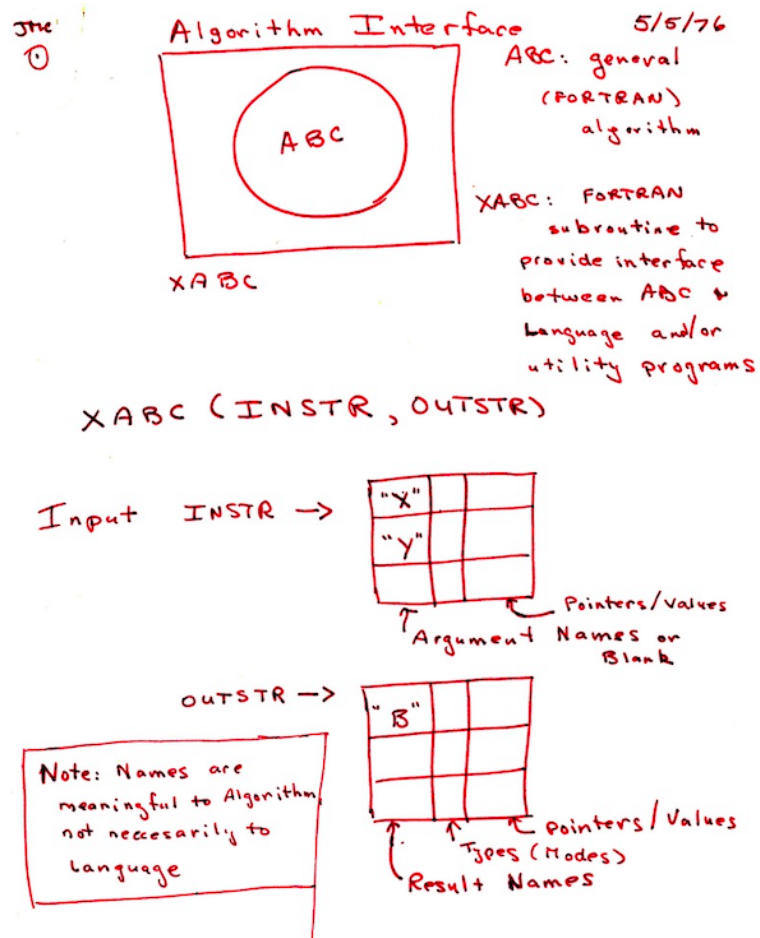 JMC
1
Algorithm Interface 5/5/76
ABC: general
(FORTRAN)
algorithm
ABC
XABC: FORTRAN
subroutine to
provide interface
between ABC &
Language and/or
utility programs
XABC
XABC (INSTR, OUTSTR)
Input INSTR →
"X"
"Y"
Pointers/Values
Argument Names or
Blank
OUTSTR →
"B"
Pointers/Values
Types (Modes)
Result Names
Note: Names are
meaningful to Algorithm,
not neccesarily to
Language